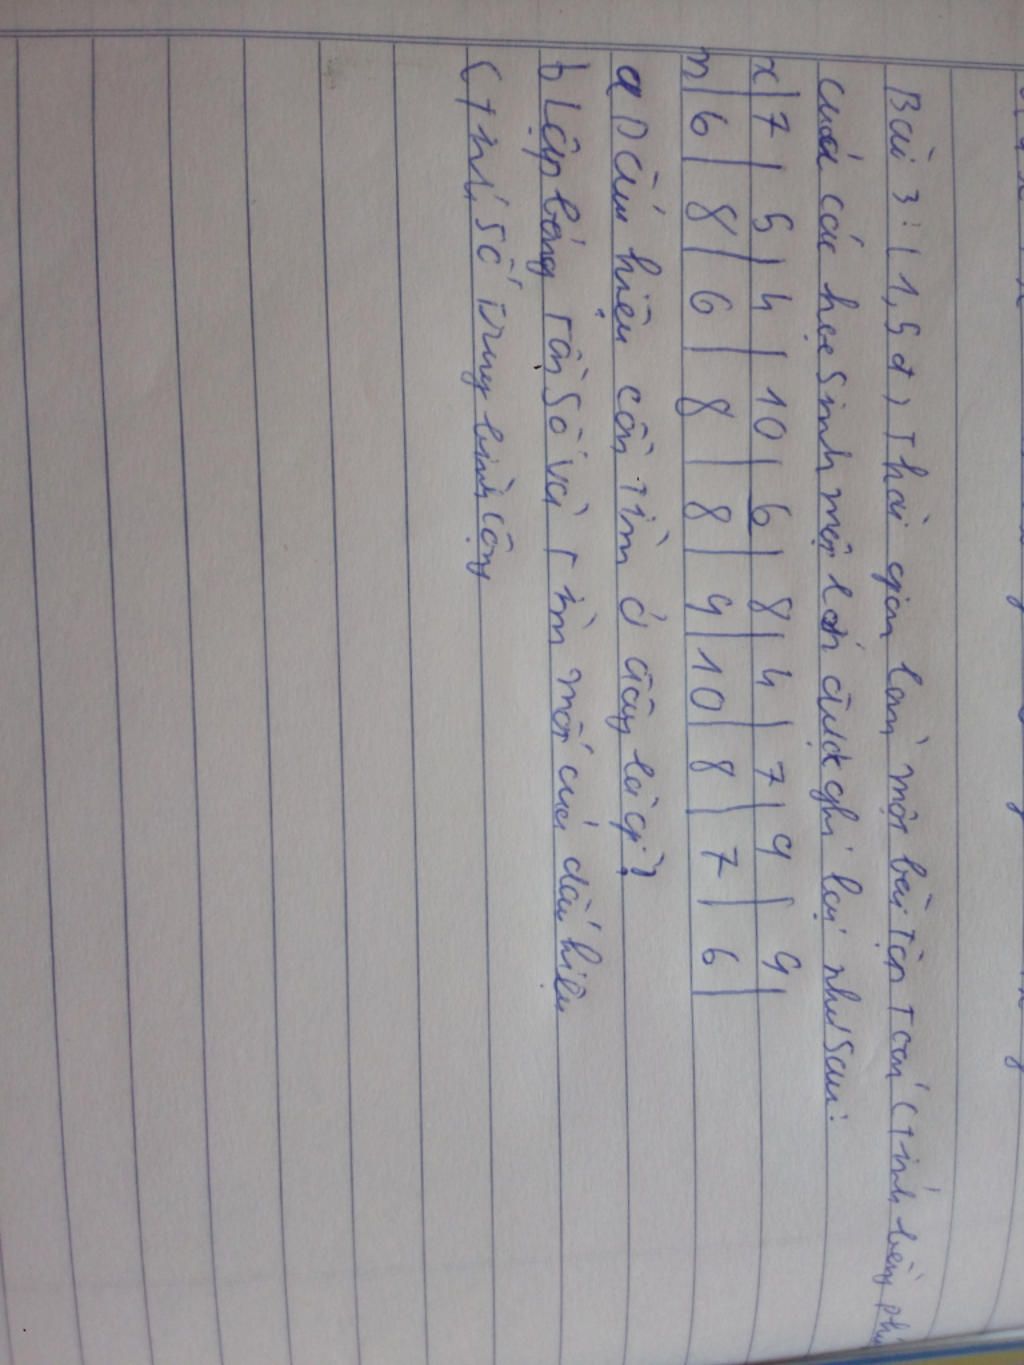 Bài 3: (1,5đ) Thời gian làm một bài tập Toán (tính bằng phú
của các học sinh một lớp được ghi lại như sau:
x | 7 | 5 | 4 | 10 | 6 | 8 | 4 | 7 | 9 | 9 |
n | 6 | 8 | 6 | 8 | 8 | 9 | 10 | 8 | 7 | 6 |
a) Dấu hiệu cần tìm ở đây là gì?
b) Lập bảng tần số và tìm mốt của dấu hiệu
c) tính số trung bình cộng